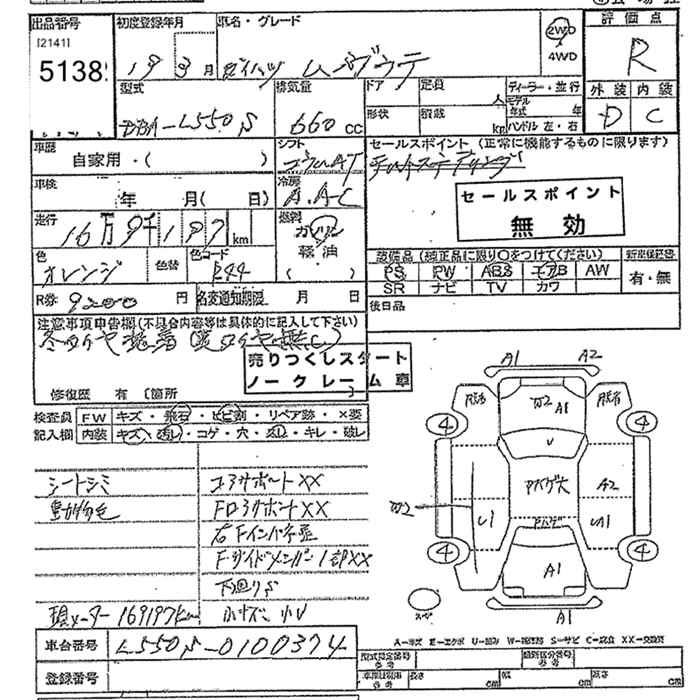 出品番号 初度登録年月 車名・グレード 評価点
[2141] 5138 19 3月 ダイハツ ムーヴラテ 2WD R
4WD
外装 内装
型式 排気量 ドア 定員 ディーラー・並行 D C
DBA-L550S 660cc 人 モデル年式 年
形状 積載 kg ハンドル 左・右
車歴 シフト セールスポイント (正常に機能するものに限ります)
自家用・( ) コラムAT
車検 冷房 セールスポイント
年 月( 日) A.A-C 無効
走行 燃料
16万9千197km ガソリン
軽油
色 色替 色コード 設備品 (純正品に限り○をつけてください) 新車保証書
オレンジ R44 PS PW ABS エアB AW 有・無
R券 9200円 名変通知期限 月 日 SR ナビ TV カワ
後日品
注意事項申告欄(不具合内容等は具体的に記入して下さい)
売りつくしスタート
ノークレーム車
修復歴 有 〔箇所
検査員 FW キズ・飛石・ヒビ割・リペア跡・×要
記入欄 内装 キズ・汚レ・コゲ・穴・スレ・キレ・破レ
A1 A2
W2 A1
4 4
U
シートシミ コアサポートXX
動物毛 FロアサポートXX
右Fインパネ歪
FサイドメンバーXX
下回りS
現メーター169197km 小キズ 小U
W2 U1 A2
4 4
A1
A1
車台番号 L550S-0100374
登録番号
A=キズ E=エクボ U=凹み W=補修跡 S=サビ C=腐食 XX=交換済
型式指定番号 参考 類別区分番号 参考
長さ cm 幅 cm 高さ cm